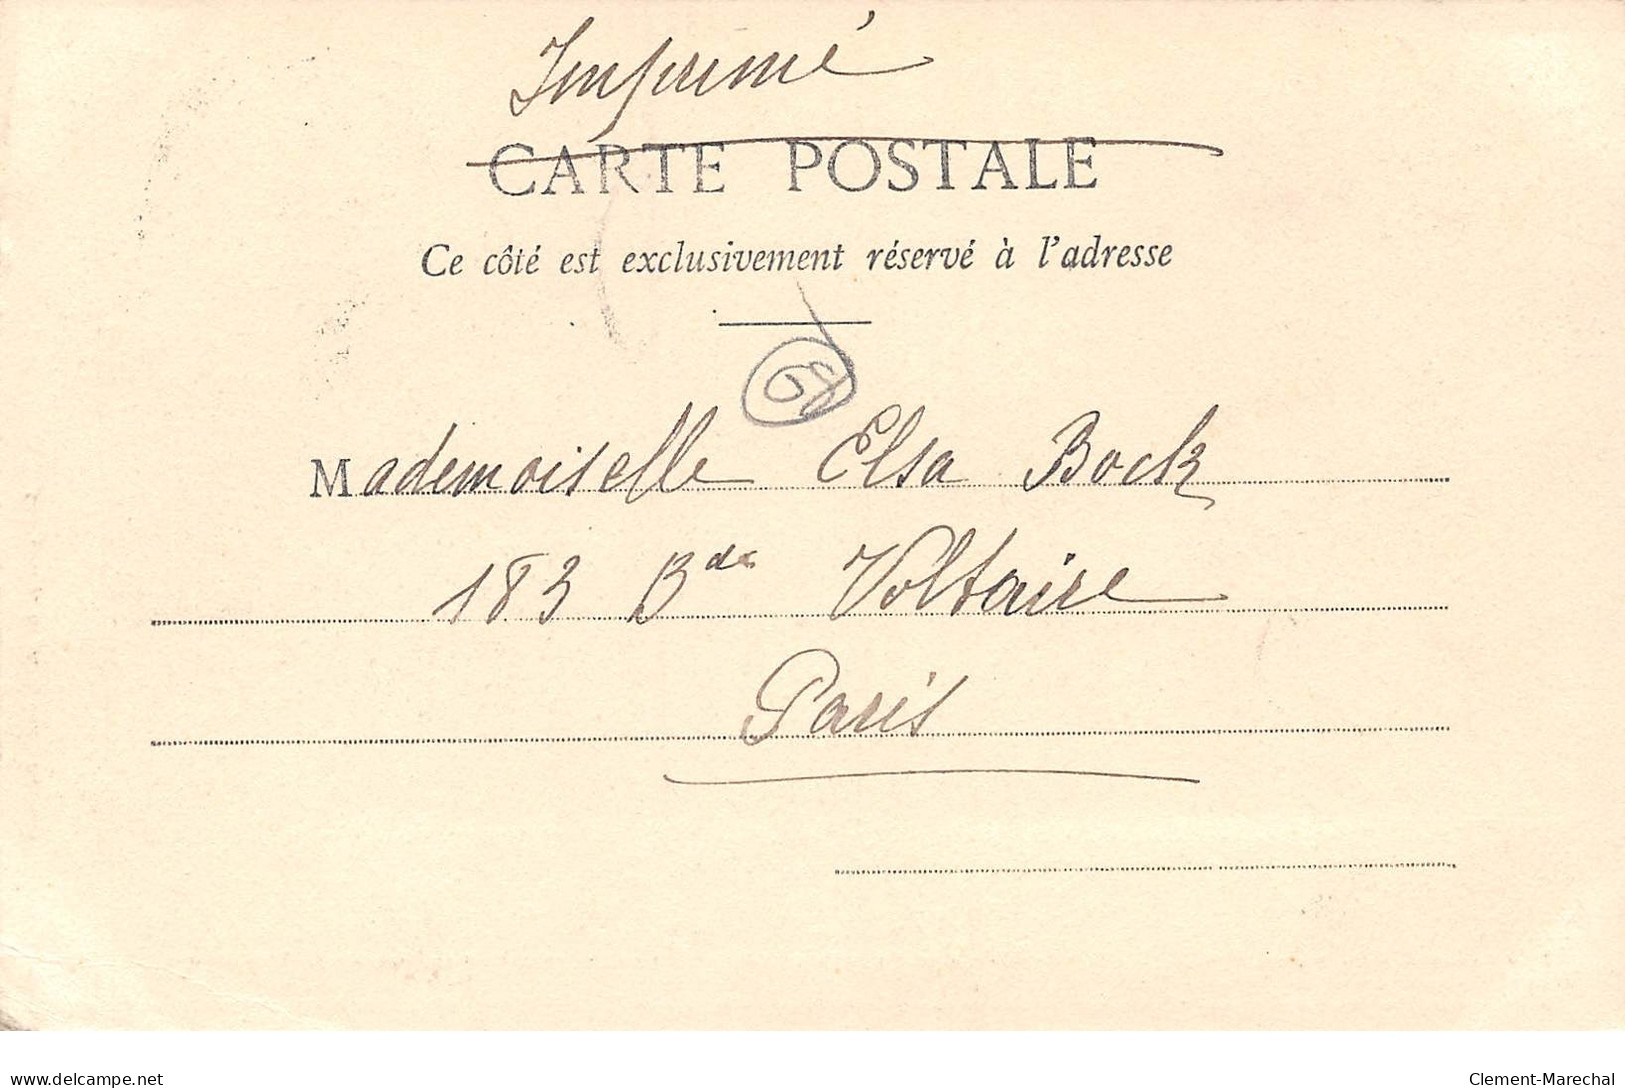 Imprimé
CARTE POSTALE
Ce côté est exclusivement réservé à l'adresse
Mademoiselle Elsa Bock
183 Bd Voltaire
Paris
delcampe.net
Clement-Marechal